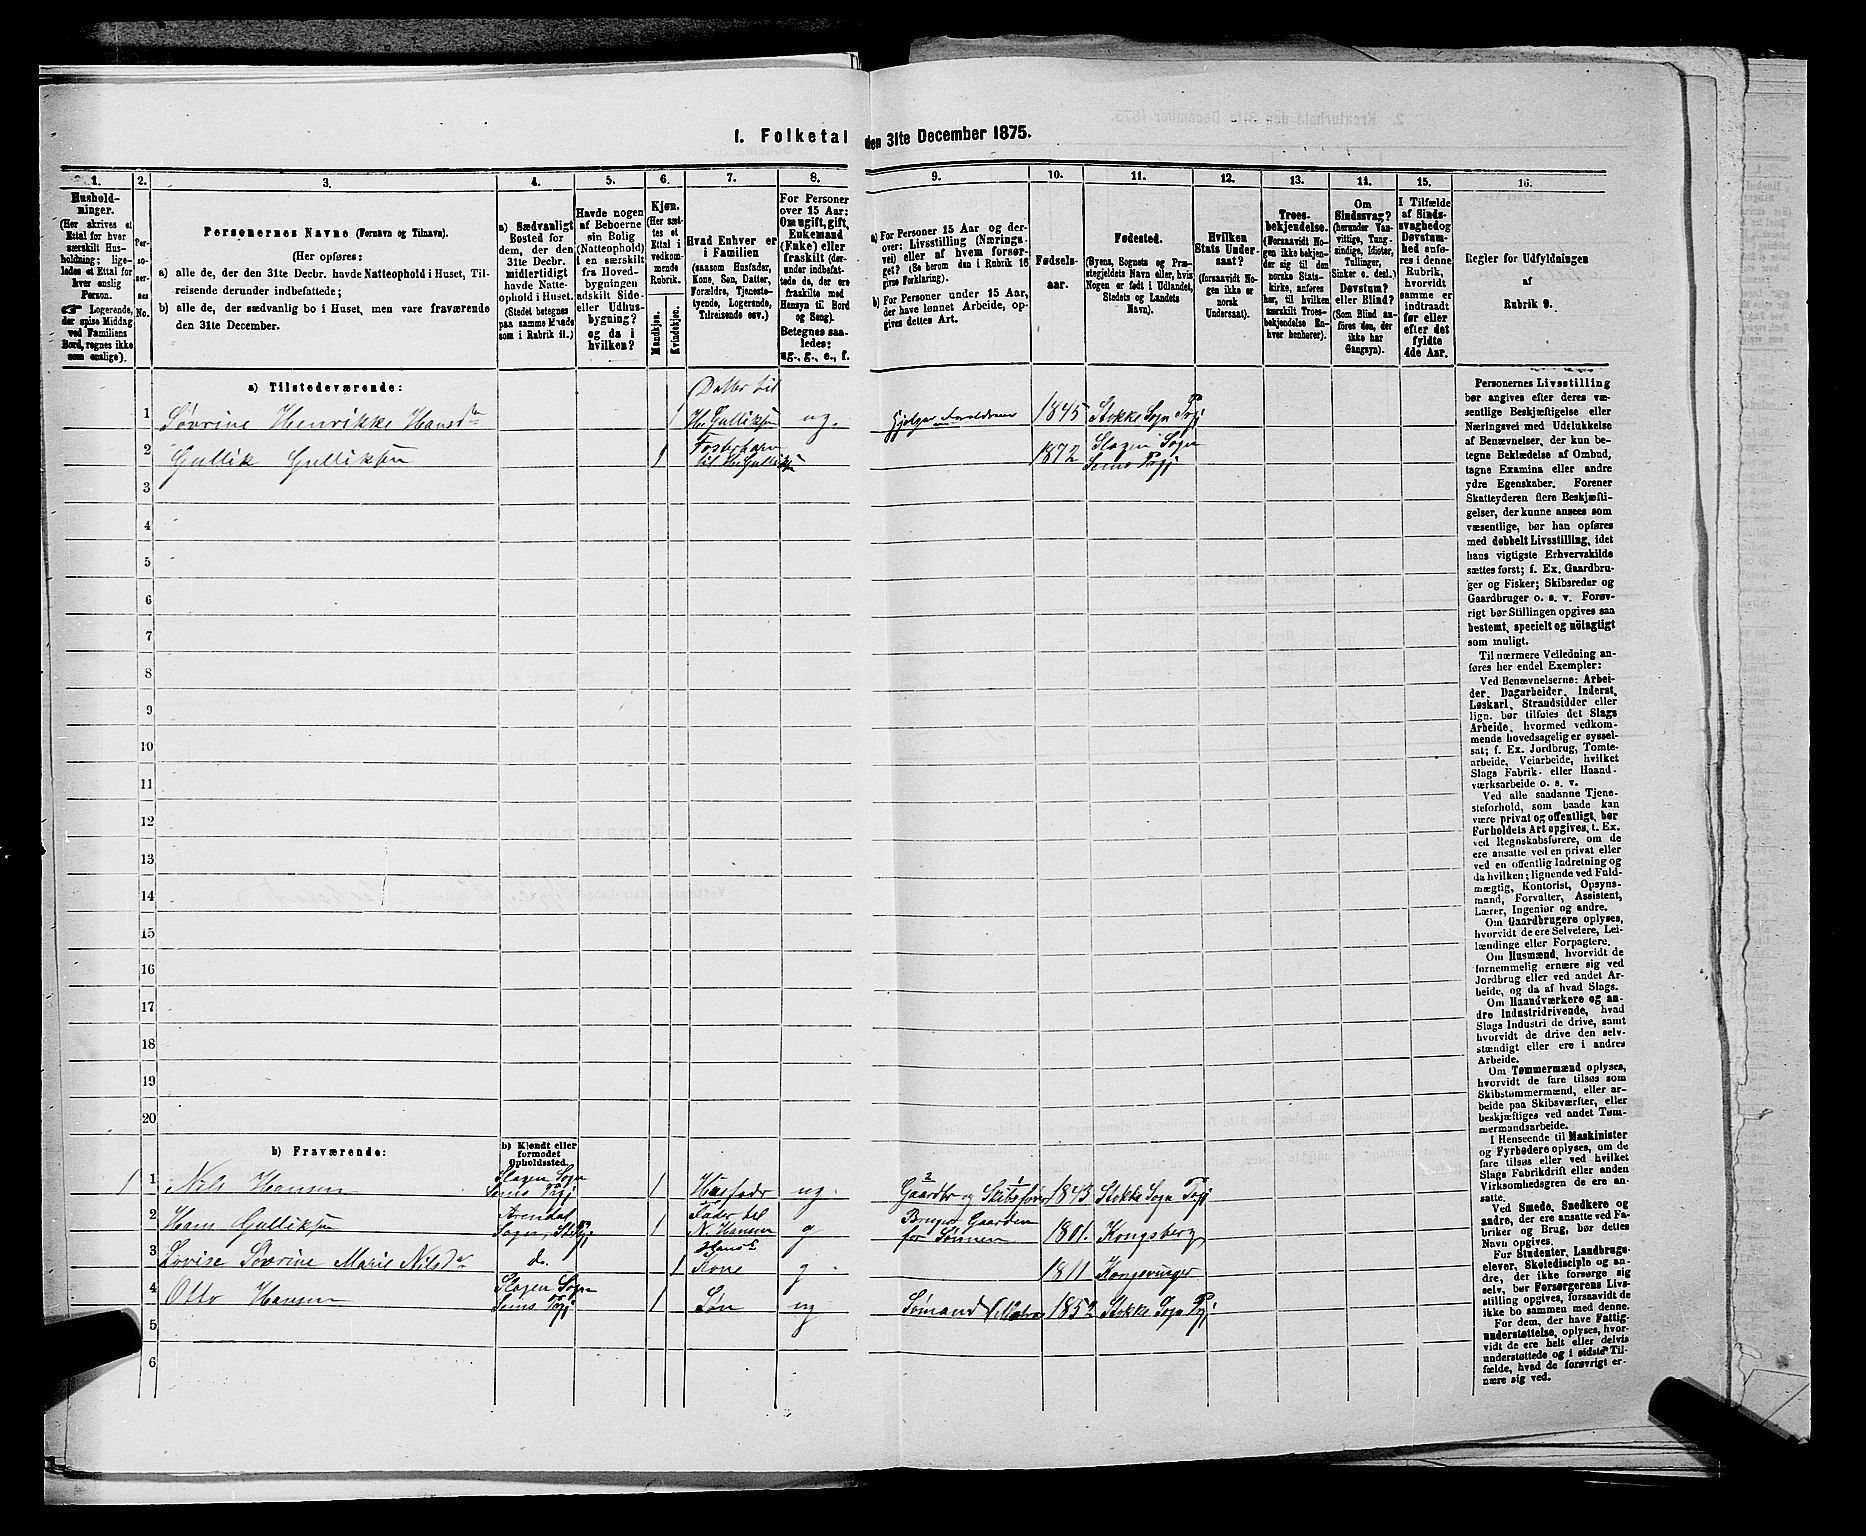 1. Folketal den 31te December 1875.
1.
2.
3.
4.
5.
6.
7.
8.
9.
10.
11.
12.
13.
14.
15.
16.
Hushold-
ninger.
(Her skrives et
Ettal for hver
særskilt Hus-
holdning; lige-
ledes et Ettal for
hver enslig
Person.
☛ Logerende,
der spise Middag
ved Familiens
Bord, regnes ikke
som enslige).
Per-
so-
ner-
nes
No.
Personernes Navne (Fornavn og Tilnavn).
(Her opføres:
a) alle de, der den 31te Decbr. havde Natteophold i Huset, Til-
reisende derunder indbefattede;
b) alle de, der sædvanlig bo i Huset, men vare fraværende
den 31te December.
a) Sædvanligt
Bosted for
dem, der den
31te Decbr.
midlertidigt
havde Natte-
ophold i Huset.
(Stedet betegnes
paa samme Maade
som i Rubrik 11.)
Havde nogen
af Beboerne
sin Bolig
(Natteophold)
i en særskilt
fra Hoved-
bygningen
adskilt Side-
eller Udhus-
bygning?
og da i
hvilken?
Kjøn.
(Her sæt-
tes et
Ettal i
vedkom-
mende
Rubrik.
Mandkjøn.
Kvindekjøn.
Hvad Enhver er
i Familien
(saasom Husfader,
Kone, Søn, Datter,
Forældre, Tjeneste-
tyende, Logerende,
Tilreisende osv.)
For Personer
over 15 Aar:
Om ugift, gift,
Enkemand
(Enke) eller
fraskilt (der-
under indbefat-
tede de, der ere
fraskilte med
Hensyn til Bord
og Seng).
Betegnes saa-
ledes:
ug., g., e., f.
a) For Personer 15 Aar og der-
over: Livsstilling (Næringsvei)
eller af hvem forsør-
get? (Se herom den i Rubrik 16
givne Forklaring).
b) For Personer under 15 Aar,
der have lønnet Arbeide, op-
gives dettes Art.
Fødsels-
aar.
Fødested.
(Byens, Sognets og Præ-
stegjeldets Navn eller, hvis
Nogen er født i Udlandet,
Stedets og Landets
Navn).
Hvilken
Stats Under-
saat?
(forsaavidt No-
gen ikke er
norsk
Undersaat).
Troes-
bekjendelse.
(Forsaavidt No-
gen ikke bekjen-
der sig til den
norske Stats-
kirke, anføres
her, til hvilken
særskilt Troes-
bekjendelse En-
hver henhører).
Om
Sindssvag?
(herunder Van-
vittige, Tung-
sindige, Idioter,
Tullinger,
Sinker o. desl.)
Døvstum?
eller Blind?
(Som Blind an-
føres den, der
ikke har
Gangsyn).
I Tilfælde
af Sinds-
svaghed og
Døvstum-
hed anfø-
res i denne
Rubrik,
hvorvidt
samme er
indtraadt
før eller
efter det
fyldte
4de Aar.
Regler for Udfyldningen
af
Rubrik 9.
a) Tilstedeværende:
1 Søvrine Henrikke Hansdtr 1 Datter til Hs Gulliksen ug. Hjelper Forældrene 1845 Stokke Sogn Prgj
2 Gullik Gulliksen 1 Fosterbarn til Hs Gulliksen 1872 Slagen Sogn Sems Prgj
3
4
5
6
7
8
9
10
11
12
13
14
15
16
17
18
19
20
b) Fraværende:
b) Kjendt eller
formodet
Opholdssted.
1 1 Nils Hansen Slagen Sogn Sems Prgj 1 Husfader ug. Gaardbr og Skibsfører 1843 Stokke Sogn Prgj
2 Hans Gulliksen Arendal Sogn, 1 Fader til N. Hansen g Bruger Gaarden for Sønnen 1801. Kongsberg
3 Lovise Søvrine Marie Nilsdr do. 1 Hans Kone g. 1811 Kongsvinger
4 Otto Hansen Slagen Sogn Sems Prgj 1 Søn ug Sømand 1852 Stokke Sogn Prgj
5
6
Personernes Livsstilling
bør angives efter deres væ-
sentlige Beskjæftigelse eller
Næringsvei med Udelukkelse
af Benævnelser, der kun be-
tegne Beklædelse af Ombud,
tagne Examina eller andre
ydre Egenskaber. Forener
Skatteyderen flere Beskjæfti-
gelser, der kunne ansees som
væsentlige, bør han opføres
med dobbelt Livsstilling, idet
hans vigtigste Erhvervskilde
sættes først; f. Ex. Gaardbru-
ger og Fisker; Skibsreder og
Gaardbruger o. s. v. Forøv-
rigt bør Stillingen opgives saa
bestemt, specielt og nöiagtigt
som muligt.
Til nærmere Veiledning an-
føres her endel Exempler:
Ved Benævnelserne: Arbei-
der, Dagarbeider, Inderst,
Løskarl, Strandsidder eller
lign. bør tilføies det Slags
Arbeide, hvormed vedkom-
mende hovedsagelig er syssel-
sat; f. Ex. Jordbrug, Tomte-
arbeide, Veiarbeide, hvilket
Slags Fabrik- eller Haand-
værksarbeide o. s. v.
Ved alle saadanne Tjene-
steforhold, som baade kan
være privat og offentligt, bør
Forholdets Art opgives, t. Ex.
ved Regnskabsførere, om de
ere ansatte ved en privat eller
ved en offentlig Indretning og
da hvilken; lignende ved Fuld-
mægtig, Kontorist, Opsyns-
mand, Forvalter, Assistent,
Lærer, Ingeniør og andre.
Om Gaardbrugere oplyses,
hvorvidt de ere Selveiere, Lei-
lændinge eller Forpagtere.
Om Husmænd, hvorvidt de
fornemmelig ernære sig ved
Jordbrug eller ved andet Ar-
beide, og da af hvad Slags.
Om Haandværkere og an-
dre Industridrivende, hvad
Slags Industri de drive, samt
hvorvidt de drive den selv-
stændigt eller ere i andres
Arbeide.
Om Tømmermænd oplyses,
hvorvidt de fare tilsøs som
Skibstømmermænd, eller ar-
beide paa Skibsværfter, eller
beskjæftiges ved andet Tøm-
mermandsarbeide.
I Henseende til Maskinister
og Fyrbødere oplyses, om de
fare tilsøs eller ved hvilket
Slags Fabrikdrift eller anden
Virksomhedsgren de ere an-
satte.
Ved Smede, Snedkere og
andre, der ere ansatte ved Fa-
briker og Brug, bør dettes
Navn opgives.
For Studenter, Landbrugs-
elever, Skoledisciple og an-
dre, der ikke forsørge sig
selv, bør Forsørgerens Livs-
stilling opgives, forsaavidt de
ikke bo sammen med denne.
For dem, der have Fattig-
understøttelse, oplyses, hvor-
vidt de ere helt eller delvis
understøttede og i sidste Til-
fælde, hvad de forøvrigt er-
nære sig ved.